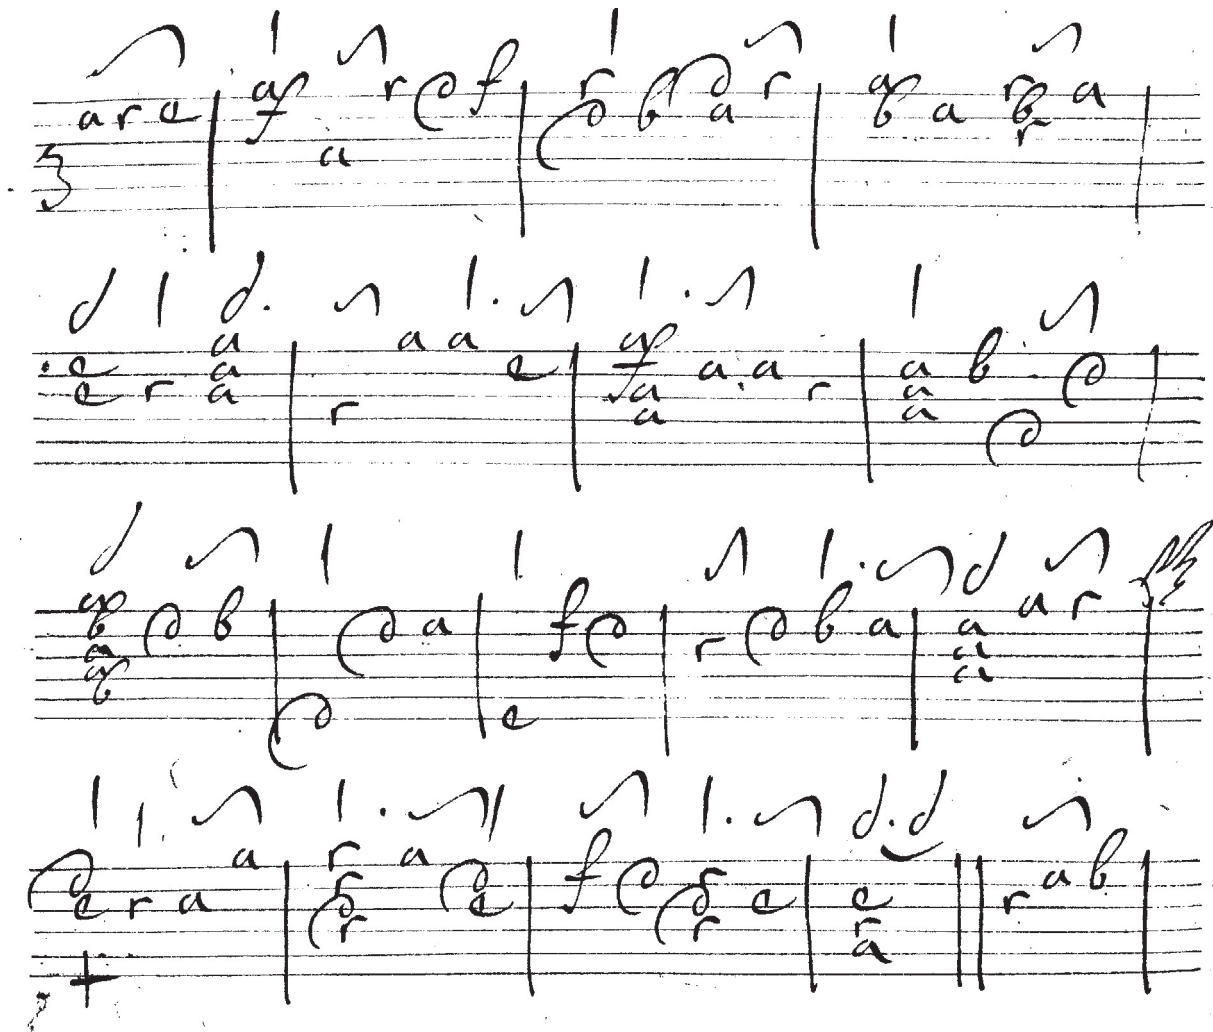 3 a r e a f a r d f r d b d a r a b a r b r a
e e r a a a r a a e a f a a a a r a a a b d d
a b a a b d b d d a e f d r d b a a a a a r
d e r a a r r d r a d e f d r d r e e r a r a b